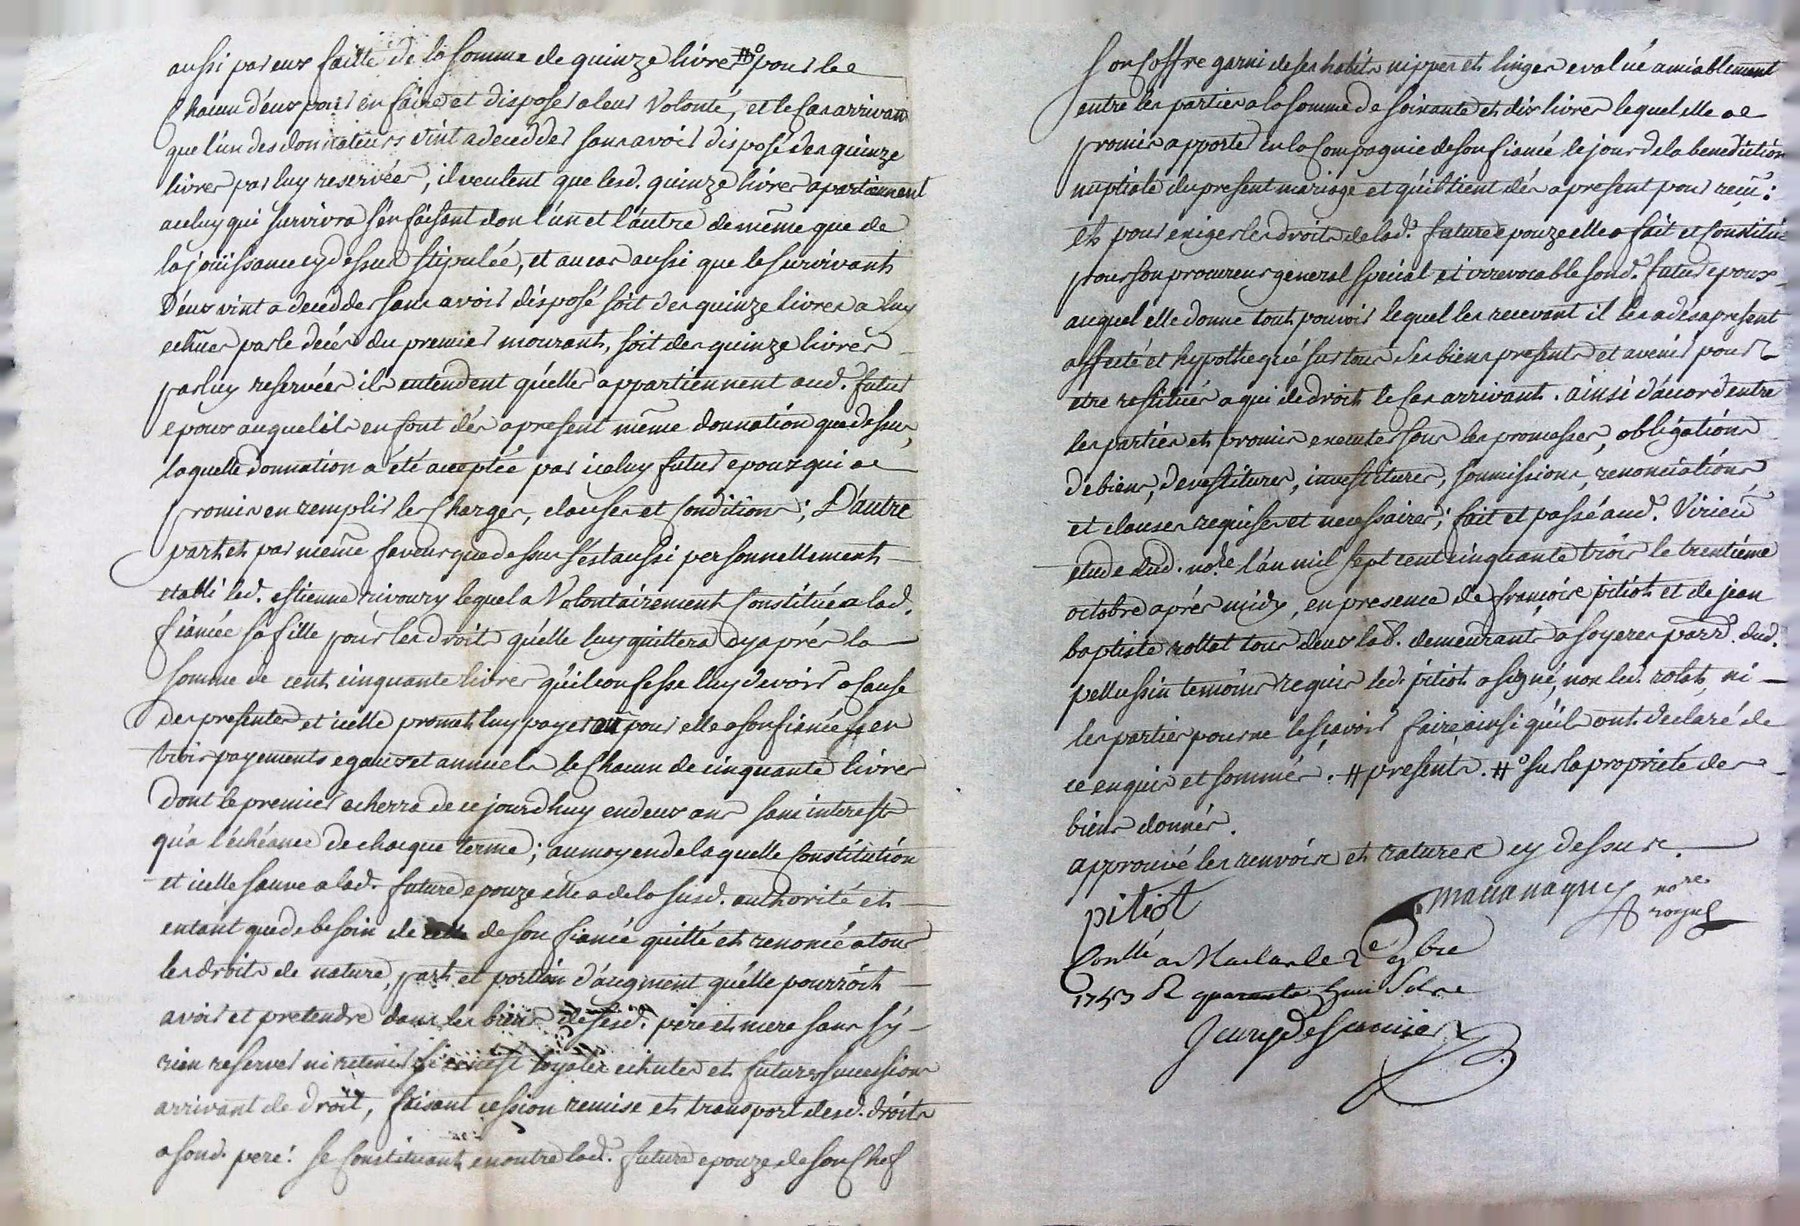 aussi par eux faitte de la somme de quinze livres #° pour le
chacun d'eux pour en faire et disposer a leur Volonté, et le cas arrivant
que l'un des donnateurs vint a decedder sans avoir disposé des quinze
livres par luy reservées, il veulent que lesd. quinze livres apartiennent
a celuy qui survivra s'en faisant don l'un et l'autre de même que de
la joüissance cy dessus stipulée, et au cas aussi que le survivant
d'eux vint a decedder sans avoir disposé soit des quinze livres a luy
echües par le decés du premier mourant, soit des quinze livres
par luy reservées ils entendent qu'elles appartiennent aud. futur
epoux auquel ils en font dés apresent même donnation que dessus,
laquelle donnation a été acceptée par iceluy futur epoux qui a
promis en remplir les charges, clauses et conditions; D'autre
part et par même faveur que dessus s'est aussi personnellement
etabli led. estienne rivoury lequel a Volontairement Constitué a lad.
fiancée sa fille pour les droit qu'elle luy quittera cy aprés la
somme de cent cinquante livres qu'il confesse luy devoir a cause
des presentes et icelle promet luy payer ou pour elle a son fiancé # en
trois payements egaux et annuels le chacun de cinquante livres
dont le premier echerra de ce jourdhuy en deux ans sans interest
qu'a l'échéance de chaque terme; au moyen de laquelle Constitution
et icelle sauve a lad. future epouze elle a de la susd. authorité et
entant que de besoin de de son fiancé quitté et renoncé a tous
les droits de nature, part et portion d'augment qu'elle pourroit
avoir et pretendre dans les biens de sesd. pere et mere sans s'y
rien reserver ni retenir si ce n'est loyales echutes et futures successions
arrivant de droit, faisant cession remise et transport desd. droits
a sond. pere: se constituant en outre lad. future epouze de son chef
son coffre garni de ses habits nippes et linges evalué amiablement
entre les parties a la somme de soixante et dix livres lequel elle a
promis apporter en la Compagnie de son fiancé le jour de la benediction
nuptiale du present mariage et qu'il tient dés apresent pour reçu:
et pour exiger les droits de lad. future epouze elle a fait et constitué
pour son procureur general special et irrevocable sond. futur epoux
auquel elle donne tout pouvoir lequel les recevant il les a dés apresent
affecté et hypothequé sur tous ses biens presents et avenir pour
etre restitués a qui de droit le cas arrivant. ainsi d'acord entre
les parties et promis executer sous les promesses, obligations
de biens, devestitures, investitures, soumissions, renonciations
et clauses requises et necessaires; fait et passé aud. Virieu
etude dud. no.re l'an mil sept cent cinquante trois le trentiéme
octobre aprés midy, en presence de françois pitiot et de jean
baptiste rollat tous deux lab. demeurants a soyeres parr. dud.
pellussin temoins requis led. pitiot a signé, non led. rolat, ni
les parties pour ne le sçavoir faire ainsi qu'il ont declaré de
ce enquis et sommés. # presents. #° sur la propriété des
biens donnés.
approuvé les renvois et ratures cy dessus.
pitiot
no.re royal
Conllé a Maclas le 2e 9bre
1753 R quarante huit sols